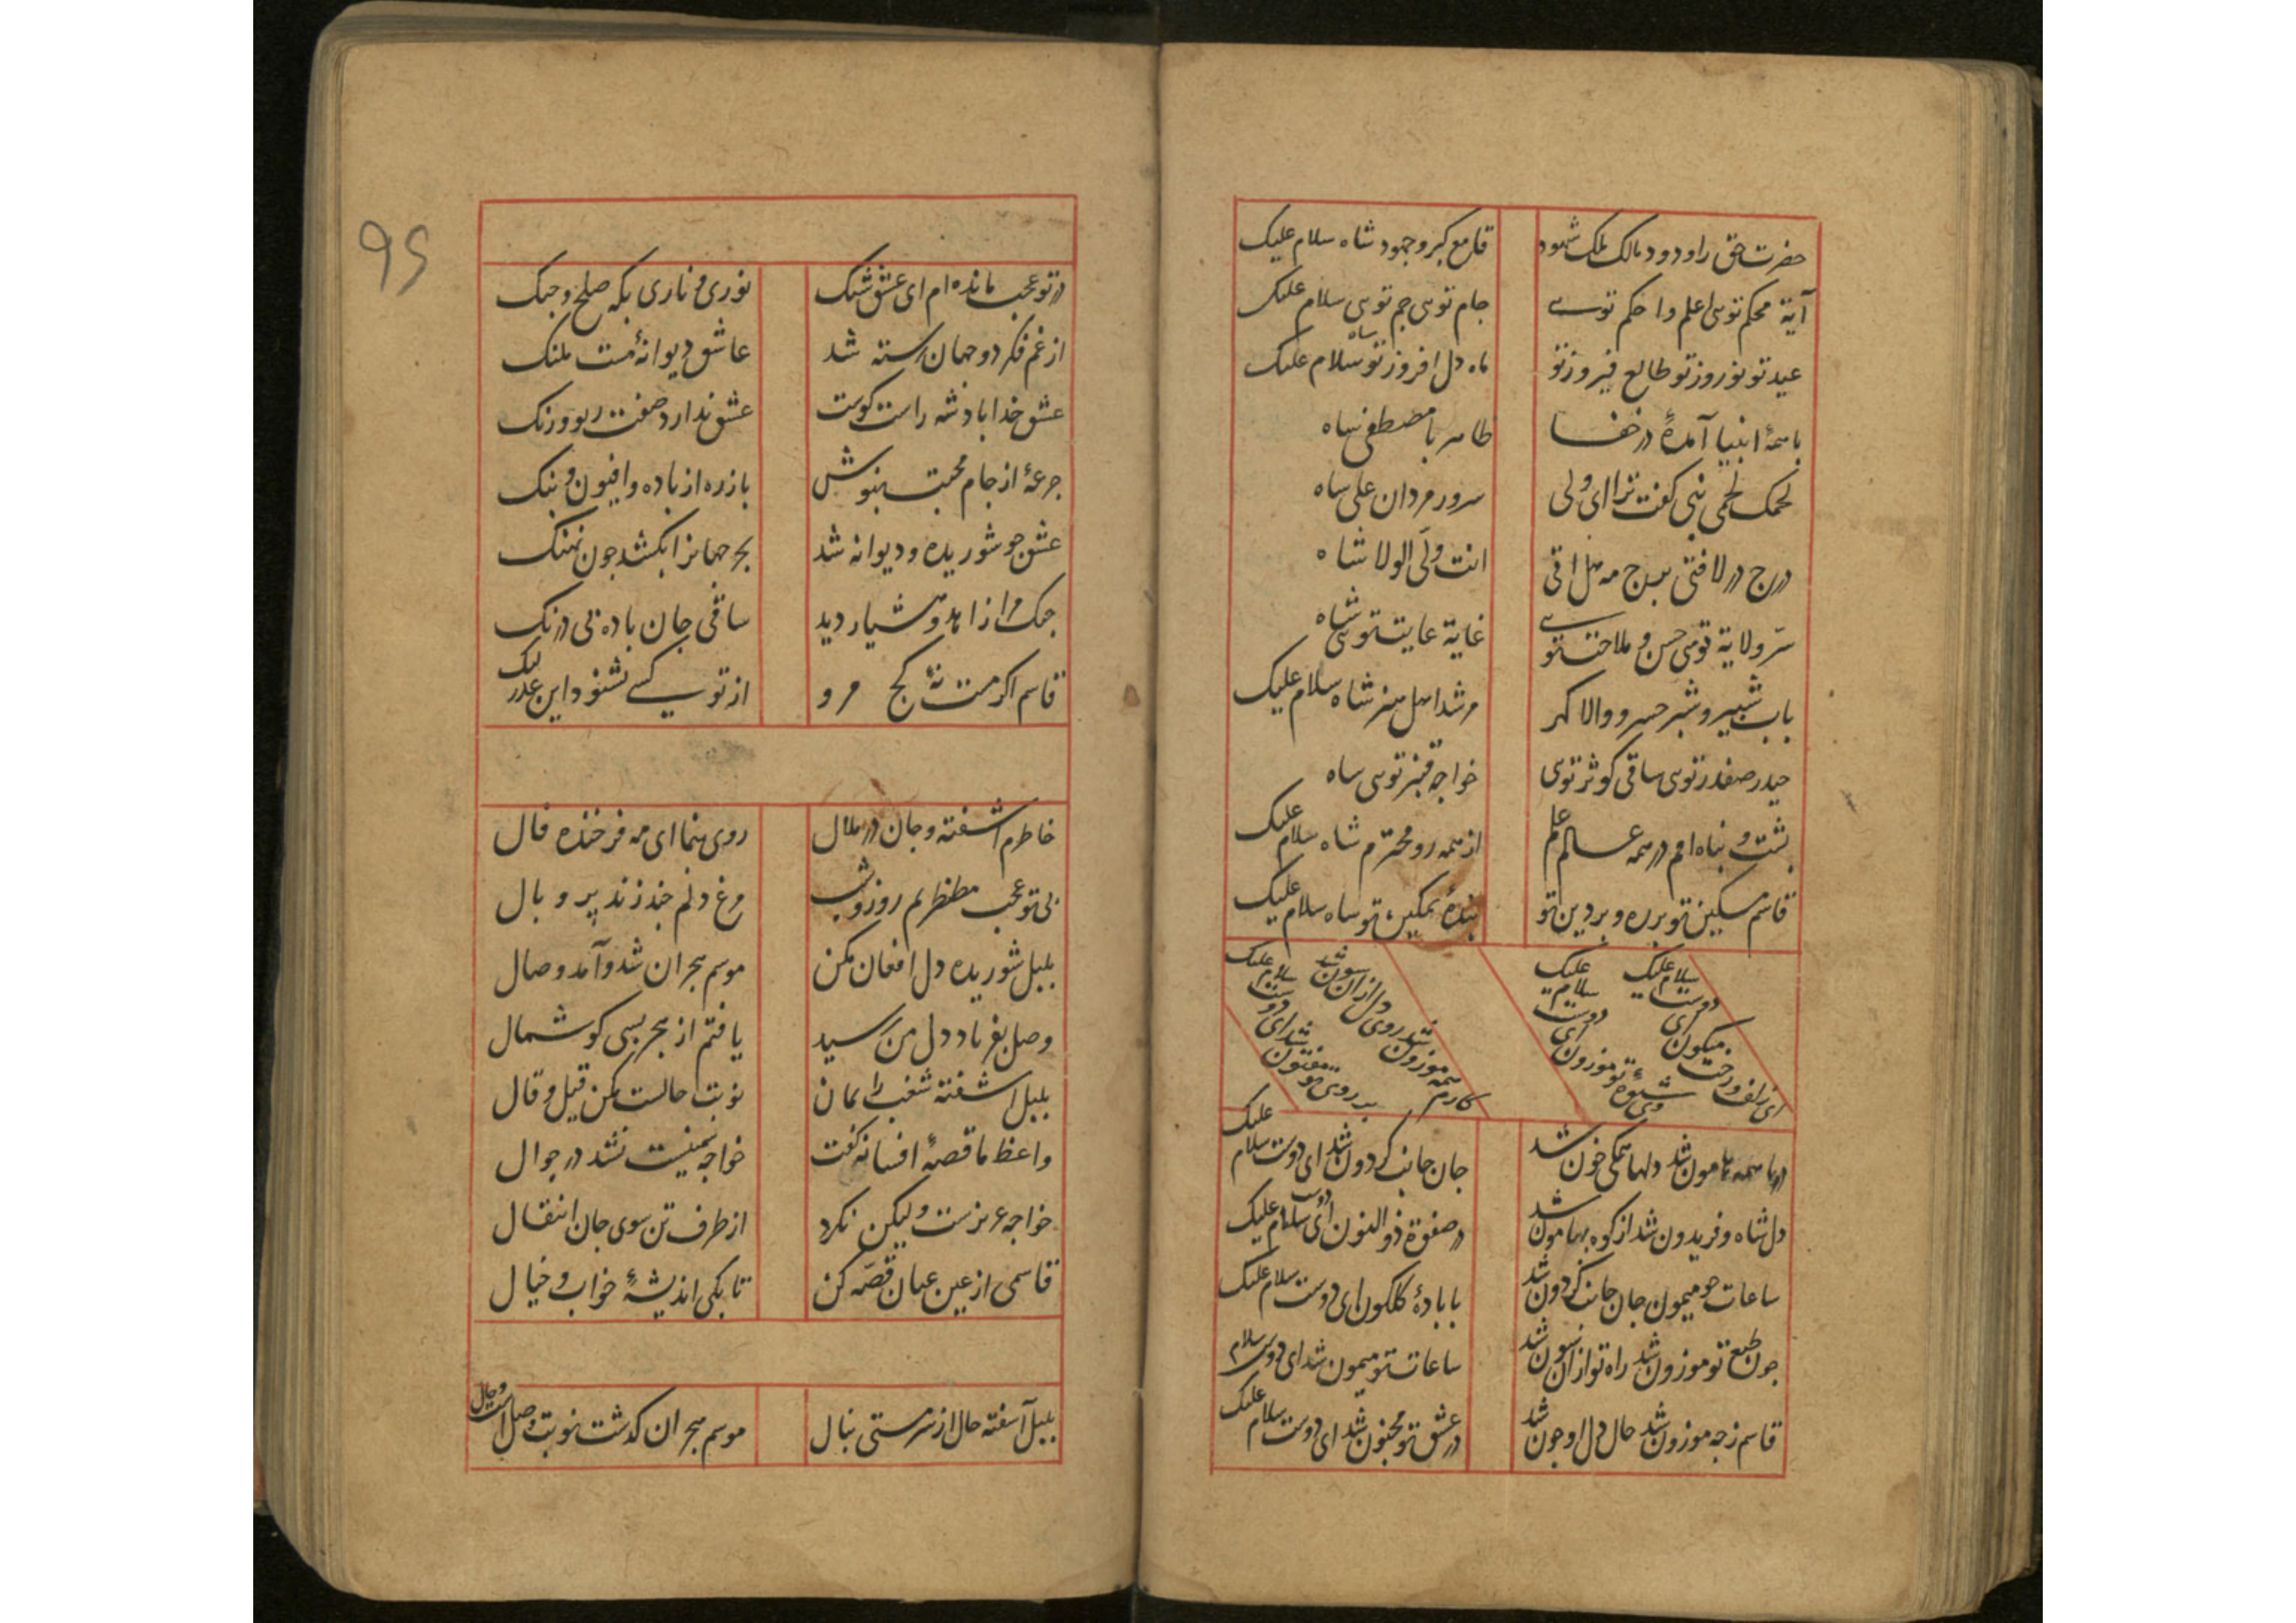 حضرت حق را ودود مالک ملک شهود
قامع کبر و جهود شاه سلام علیک
آیة محکم توسی اعلم و احکم توسے
جام توسی جم توسی سلام علیک
عید تو نوروز تو طالع فیروز تو
ماه دل افروز تو شاه سلام علیک
با همهٔ انبیا آمدهٔ در خفا
ظاهر با مصطفی شاه
لحمک لحمی نبی گفت ترا ای ولی
سرور مردان علی شاه
درج در لافتی برج مه هل اتی
انت ولی الولا شاه
سرّ ولایة توسی حسن و ملاحت توسے
غایة غایت توسی شاه
باب شبیر و شبر خسرو والا گهر
مرشد اهل هنر شاه سلام علیک
حیدر صفدر توسی ساقی کوثر توی
خواجه قنبر توسی شاه
پشت و پناه امم در همه عالم علم
از همه رو محترم شاه سلام علیک
قاسم مسکین تو برده و بر دین تو
بندهٔ تمکین تو شاه سلام علیک
ای زلف و رخت میکون ای دوست سلام علیک
وی شیوهٔ تو موزون ای دوست سلام علیک
کارم همه موزون شد روی دل از آن سون شد
بر روی تو مفتون شد ای دوست سلام علیک
دریا همه هامون شد دلها همگی خون شد
جان جانب گردون شد ای دوست سلام علیک
دل شاه و فریدون شد از کوه بهامون شد
در صفوة ذوالنون ای دوست سلام علیک
ساعات چو میمون جان جانب گردون شد
با بادهٔ گلگون ای دوست سلام علیک
چون طبع تو موزون شد راه تو از آن سون شد
ساعات تو میمون شد ای دوست سلام
قاسم ز چه موزون شد حال دل او چون شد
در عشق تو مجنون شد ای دوست سلام علیک
95
در تو عجب مانده ام ای عشق شنک
نوری و ناری بگه صلح و جنک
از غم فکر دو جهان رسته شد
عاشق دیوانهٔ مست ملنک
عشق خدا بادشه راست گوست
عشق ندارد صفت ریو و رنک
جرعهٔ از جام محبت بنوش
باز ره از باده و افیون و بنک
عشق چو شوریده و دیوانه شد
بحر جهانرا بکشد چون نهنک
جنک مرا زاهد و هشیار دید
ساقی جان باده بی درنک
قاسم اگر مست نهٔ کج مرو
از تو کسے نشنود این عذر لنک
خاطرم آشفته و جان در ملال
روی بنما ای مه فرخنده فال
بی تو عجب مضطرم روز و شب
مرغ دلم چند زند پر و بال
بلبل شوریده دل افغان مکن
موسم هجران شد و آمد وصال
وصل بفریاد دل من رسید
یافتم از هجر بسی گوشمال
بلبل آشفته شغب را بمان
نوبت حالست مکن قیل و قال
واعظ ما قصهٔ افسانه گفت
خواجه سمینست نشد در جوال
خواجه عزیزست ولیکن نکرد
از طرف تن سوی جان انتقال
قاسمی از عین عیان قصّه کن
تا بکی اندیشهٔ خواب و خیال
بلبل آشفته حال از سر مستی بنال
موسم هجران گذشت نوبت وصل است و حال